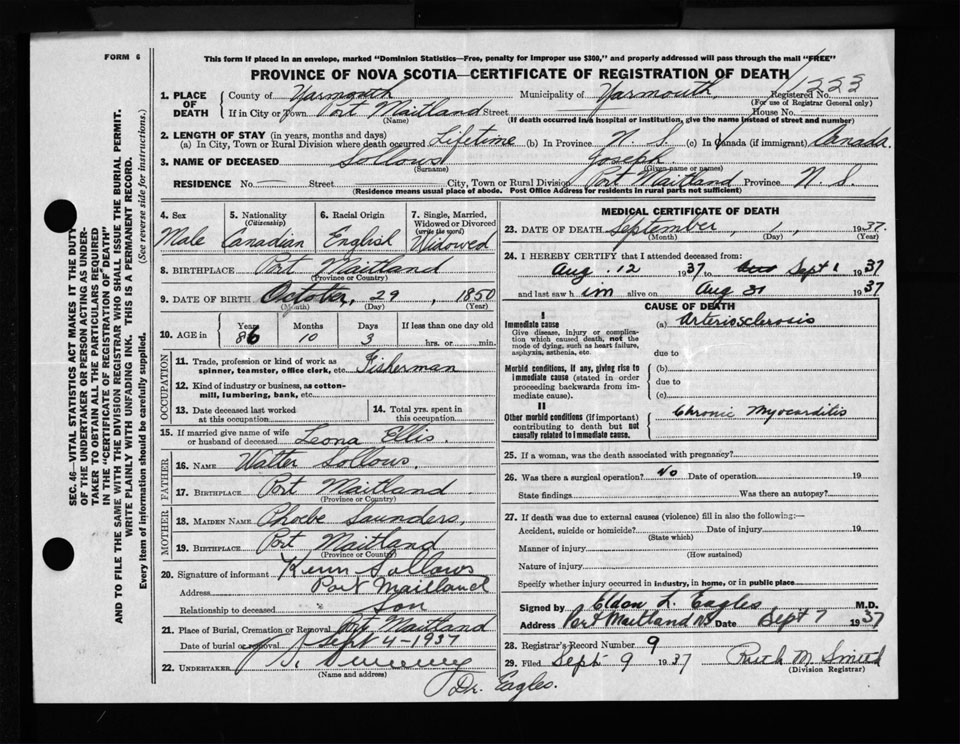 FORM 6
This form if placed in an envelope, marked "Dominion Statistics—Free, penalty for improper use $300," and properly addressed will pass through the mail "FREE"
PROVINCE OF NOVA SCOTIA—CERTIFICATE OF REGISTRATION OF DEATH
SEC. 46—VITAL STATISTICS ACT MAKES IT THE DUTY
OF THE UNDERTAKER OR PERSON ACTING AS UNDER-
TAKER TO OBTAIN ALL THE PARTICULARS REQUIRED
IN THE "CERTIFICATE OF REGISTRATION OF DEATH"
AND TO FILE THE SAME WITH THE DIVISION REGISTRAR WHO SHALL ISSUE THE BURIAL PERMIT.
WRITE PLAINLY WITH UNFADING INK. THIS IS A PERMANENT RECORD.
Every item of information should be carefully supplied. (See reverse side for instructions.)
1. PLACE OF DEATH
County of Yarmouth Municipality of Yarmouth Registered No. 1223
(For use of Registrar General only)
If in City or Town Port Maitland Street House No.
(Name) (If death occurred in a hospital or institution, give the name instead of street and number)
2. LENGTH OF STAY (in years, months and days)
(a) In City, Town or Rural Division where death occurred Lifetime (b) In Province N. S. (c) In Canada (if immigrant) Canada
3. NAME OF DECEASED Sollows Joseph
(Surname) (Given name or names)
RESIDENCE No. — Street City, Town or Rural Division Port Maitland Province N. S.
(Residence means usual place of abode. Post Office Address for residents in rural parts not sufficient)
4. Sex
Male
5. Nationality
(Citizenship)
Canadian
6. Racial Origin
English
7. Single, Married, Widowed or Divorced
(write the word)
Widowed
8. BIRTHPLACE Port Maitland
(Province or Country)
9. DATE OF BIRTH October, 29, 1850
(Month) (Day) (Year)
10. AGE in Years Months Days If less than one day old
86 10 3 hrs. or min.
OCCUPATION
11. Trade, profession or kind of work as
spinner, teamster, office clerk, etc. Fisherman
12. Kind of industry or business, as cotton-
mill, lumbering, bank, etc.
13. Date deceased last worked
at this occupation
14. Total yrs. spent in
this occupation
15. If married give name of wife
or husband of deceased Leona Ellis.
FATHER
16. NAME Walter Sollows.
17. BIRTHPLACE Port Maitland
(Province or Country)
MOTHER
18. MAIDEN NAME Phoebe Saunders,
19. BIRTHPLACE Port Maitland
(Province or Country)
20. Signature of informant Sollows
Address Port Maitland
Relationship to deceased Son
21. Place of Burial, Cremation or Removal Port Maitland
Date of burial or removal Sept 4 - 1937
22. UNDERTAKER Sweeney
(Name and address)
Dr. Eagles.
MEDICAL CERTIFICATE OF DEATH
23. DATE OF DEATH September, 1, 1937.
(Month) (Day) (Year)
24. I HEREBY CERTIFY that I attended deceased from:
Aug. 12 1937 to Sept 1 1937
and last saw him alive on Aug 31 1937
CAUSE OF DEATH
I
Immediate cause
Give disease, injury or complication which caused death, not the mode of dying, such as heart failure, asphyxia, asthenia, etc.
(a) Arteriosclerosis
due to
Morbid conditions, if any, giving rise to immediate cause (stated in order proceeding backwards from immediate).
(b)
due to
(c)
II
Other morbid conditions (if important) contributing to death but not causally related to immediate cause.
Chronic Myocarditis
25. If a woman, was the death associated with pregnancy?
26. Was there a surgical operation? No Date of operation 19
State findings Was there an autopsy?
27. If death was due to external causes (violence) fill in also the following:—
Accident, suicide or homicide? Date of injury 19
(State which)
Manner of injury
(How sustained)
Nature of injury
Specify whether injury occurred in industry, in home, or in public place
Signed by Eldon L. Eagles M.D.
Address Port Maitland NS Date Sept 7 1937
28. Registrar's Record Number 9
29. Filed Sept 9 1937 Ruth M. Smith
(Division Registrar)